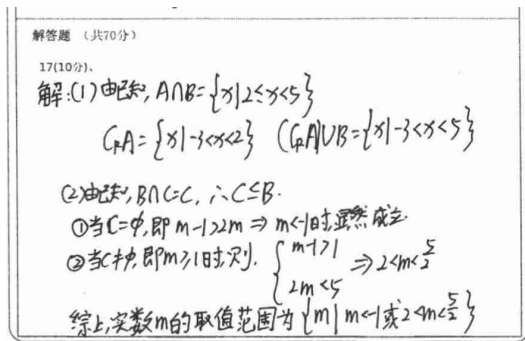 解答题 （共70分）
17(10分)、
解:(1)由已知, A∩B={x|2≤x<5}
C_RA={x|-3<x<2} (C_RA)∪B={x|-3<x<5}
(2)由已知, B∩C=C, ∴C⊆B.
①当C=φ,即 m-1>2m ⇒ m<-1时,显然成立.
②当C≠φ,即m≥-1时,则. { m-1>1 2m<5 ⇒ 2<m<5/2
综上,实数m的取值范围为{m|m<-1或2<m<5/2}